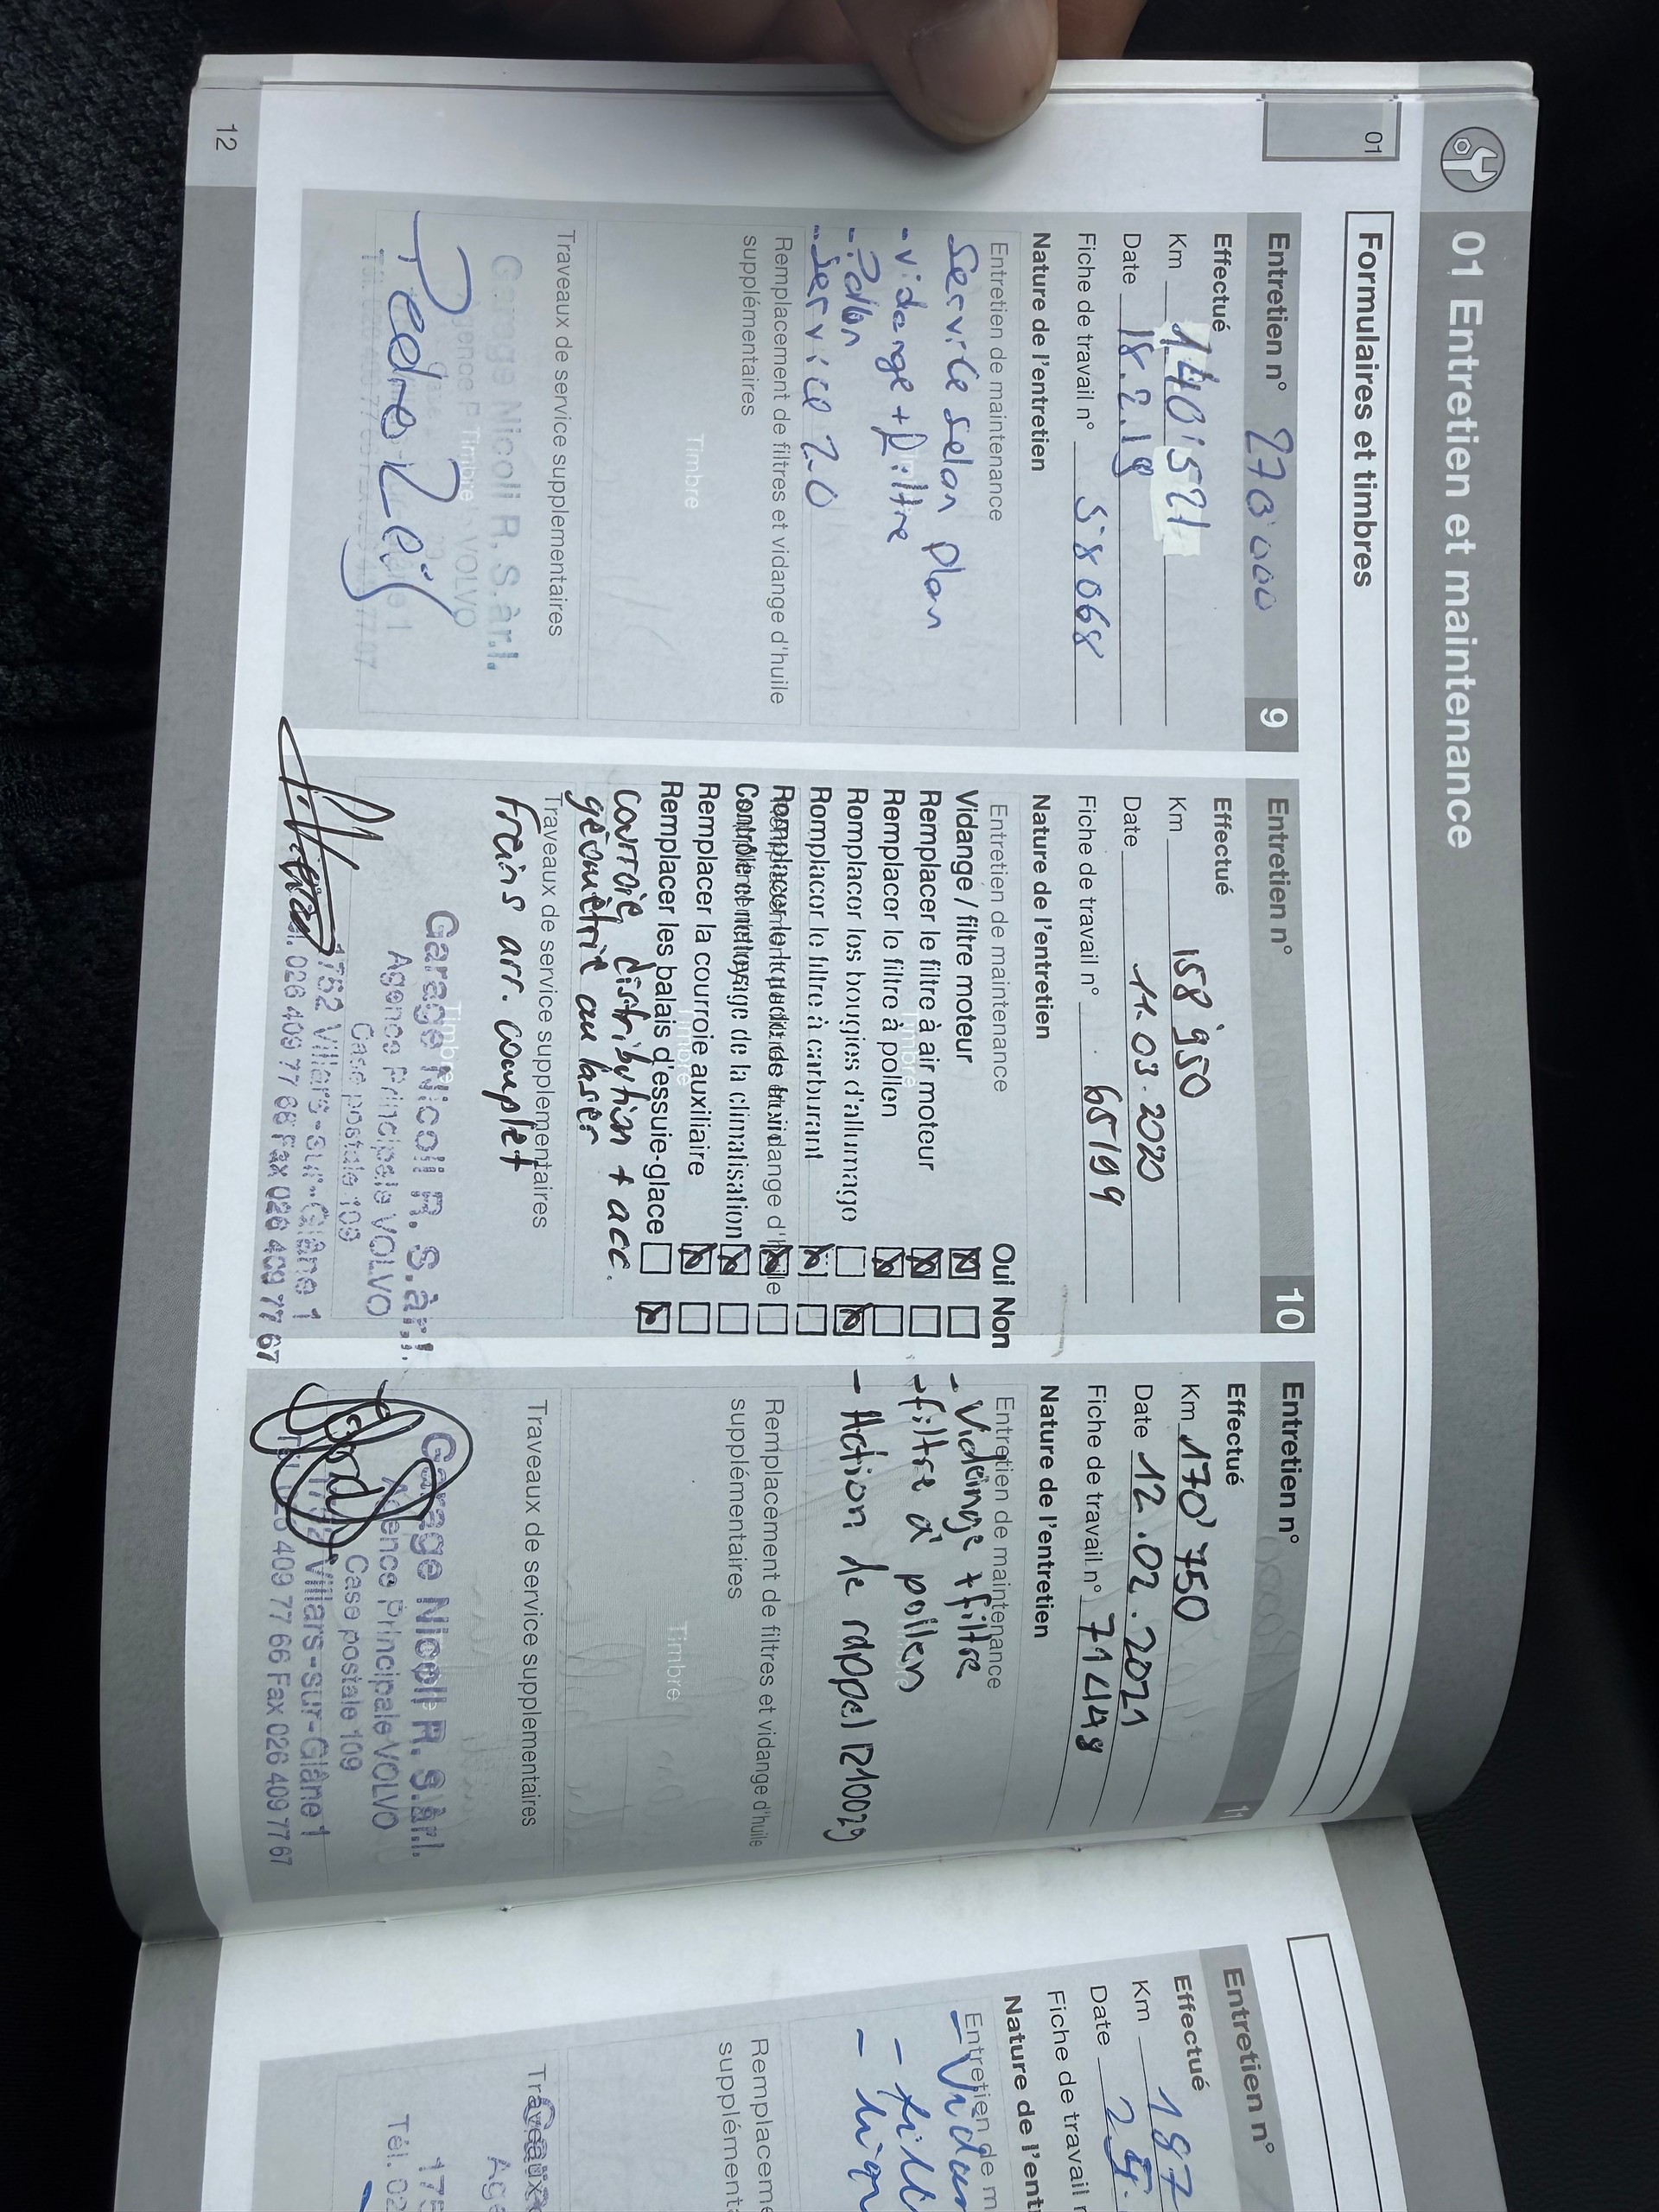 01 Entretien et maintenance
01
Formulaires et timbres
Entretien n° 270'000 9
Effectué
Km 140'521
Date 18.2.19
Fiche de travail n° 58068
Nature de l'entretien
Entretien de maintenance
Service selon plan
- vidange + filtre
- Pollen
- Service 2.0
Remplacement de filtres et vidange d'huile
supplémentaires
Timbre
Travaux de service supplementaires
Garage Nicoli R. S.à r.l.
Timbre
Entretien n° 10
Effectué
Km 158'950
Date 11.03.2020
Fiche de travail n° 65199
Nature de l'entretien
Entretien de maintenance
Oui Non
Vidange / filtre moteur
Remplacer le filtre à air moteur
Remplacer le filtre à pollen
Remplacer les bougies d'allumage
Remplacer le filtre à carburant
Contrôle et nettoyage de la climatisation
Remplacer la courroie auxiliaire
Remplacer les balais d'essuie-glace
courroie distribution + acc.
géométrie au laser
Travaux de service supplementaires
Freins arr. complet
Timbre
Garage Nicoli R. S.à r.l.
Agence Principale VOLVO
Case postale 109
1752 Villars-sur-Glâne 1
Tél. 026 409 77 66 Fax 026 409 77 67
Entretien n° 11
Effectué
Km 170'750
Date 12.02.2021
Fiche de travail n° 71448
Nature de l'entretien
Entretien de maintenance
- Vidange + filtre
- filtre à pollen
- Action de rappel R10029
Remplacement de filtres et vidange d'huile
supplémentaires
Timbre
Travaux de service supplementaires
Garage Nicoli R. S.à r.l.
Agence Principale VOLVO
Case postale 109
1752 Villars-sur-Glâne 1
Tél. 026 409 77 66 Fax 026 409 77 67
12
Entretien n°
Effectué
Km 187
Date
Fiche de travail
Nature de l'ent
Entretien de m
Remplaceme
supplément
Travaux
Tél. 02